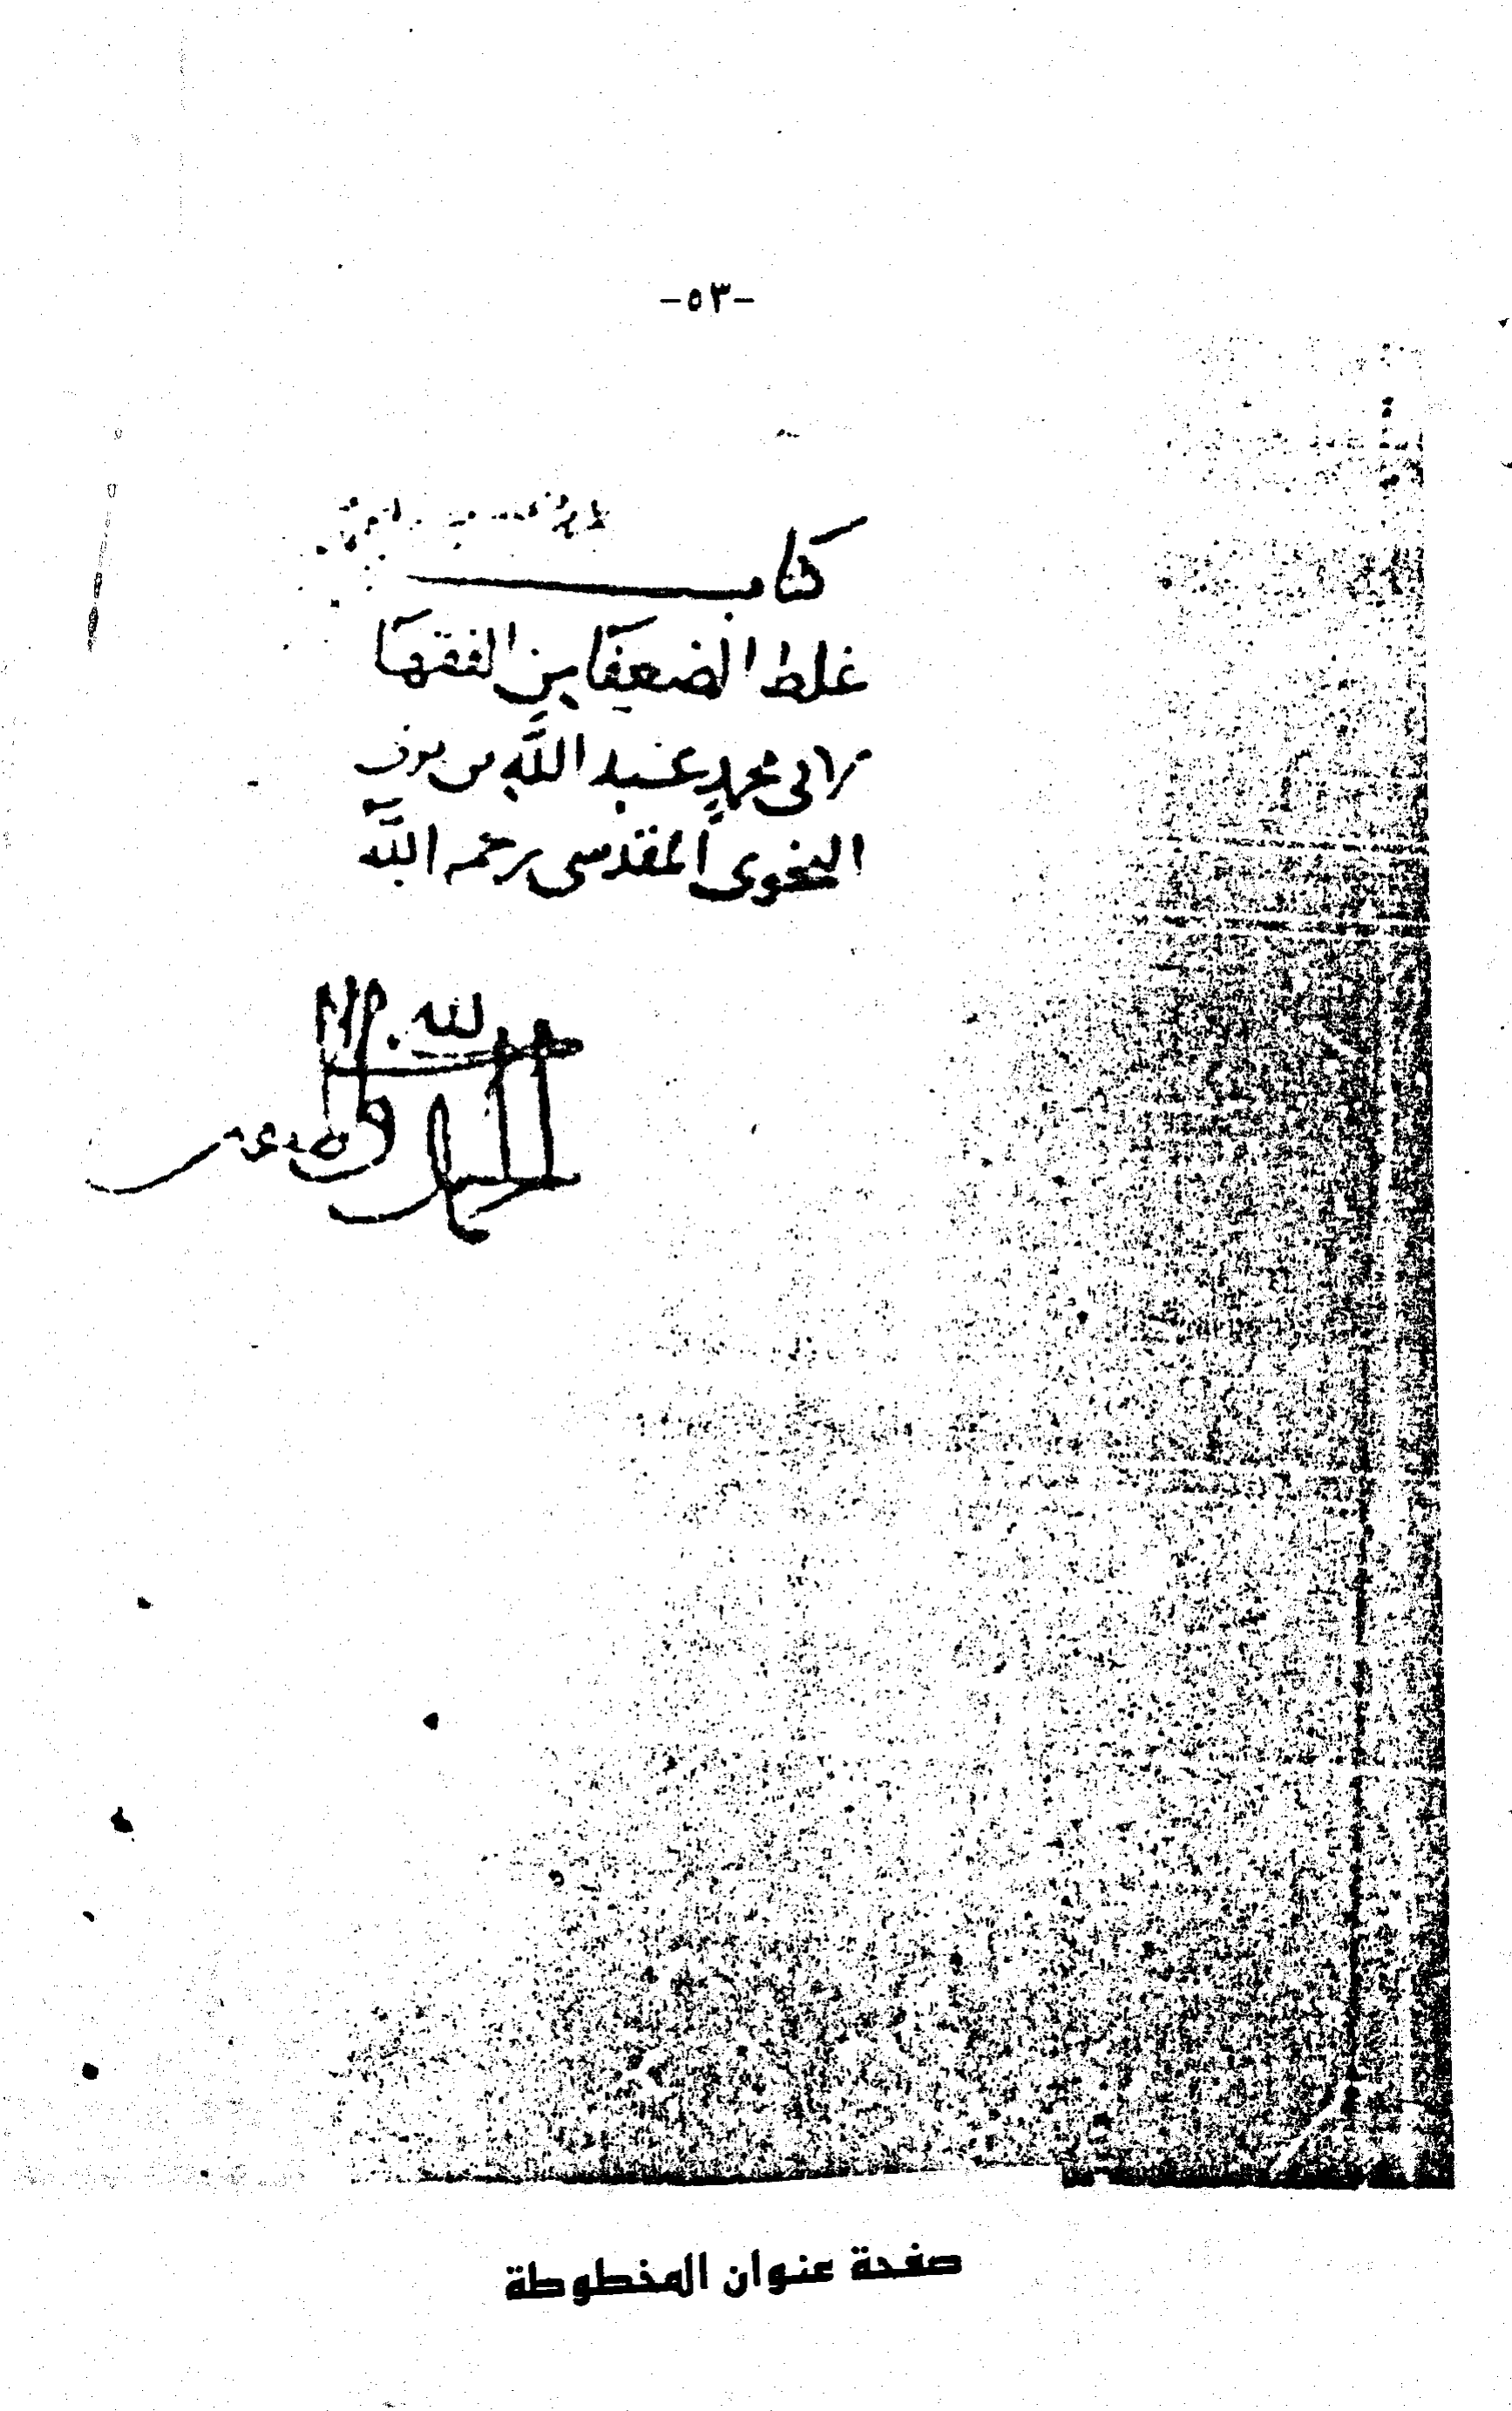 -٥٣-
كتاب
غلط الضعفا من الفقها
لابى محمد عبد الله بن برى
النحوى المقدسى رحمه الله
لله
صفحة عنوان المخطوطة